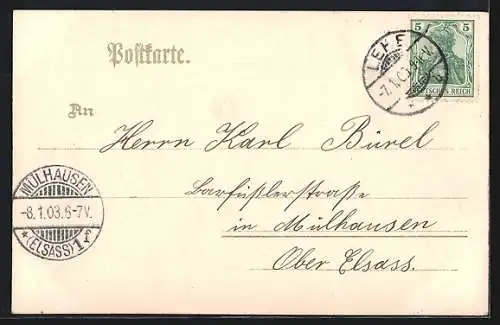 Postkarte.
LEHE
5 5
DEUTSCHES REICH
An
Herrn Karl Bürel
Barfüßlerstrasse
in Mülhausen
Ober Elsass.
MÜLHAUSEN
-8.1.03.6-7V.
*(ELSASS)1f